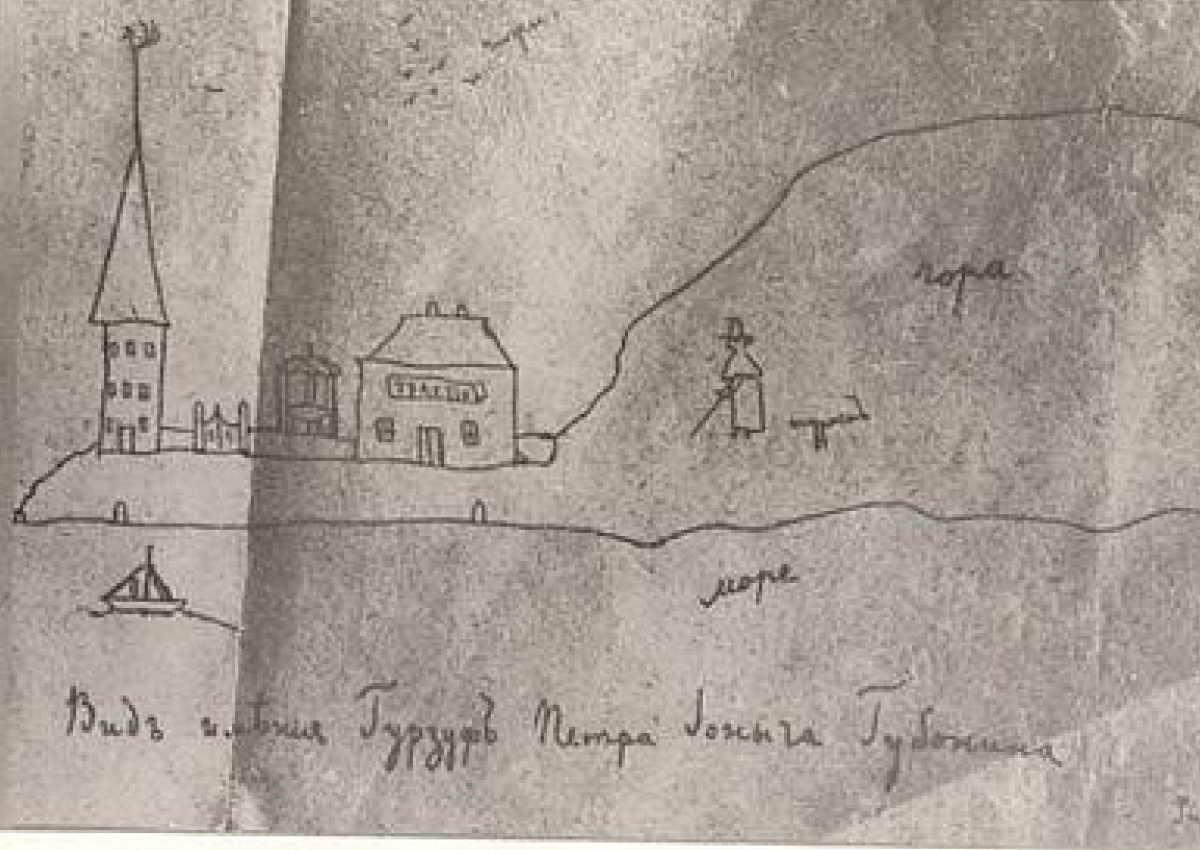 гора
море
Видъ имѣния Гурзуфъ Петра Іоныча Губонина